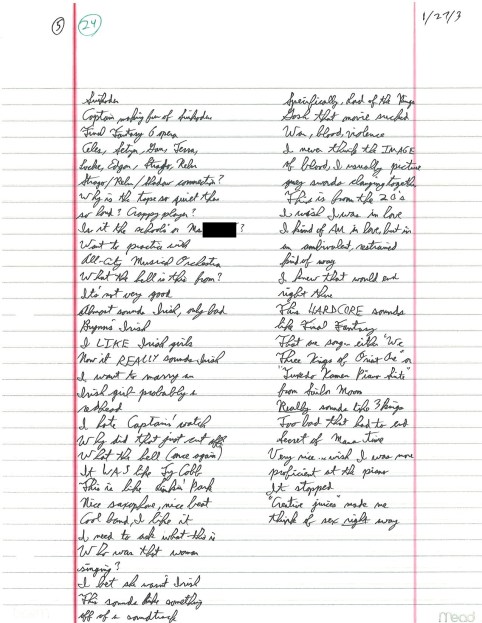 5
24
1/27/3
Captain making fun of
Final Fantasy 6 opera
Celes, Setzer, Gau, Terra,
Locke, Edgar, Strago, Relm
Strago/Relm/Shadow connection?
Why is the tape so quiet this
so loud? Crappy player?
Is it the school's or Ms ?
Want to practice with
All-City Musical Orchestra
What the hell is this from?
It's not very good
Almost sounds Irish, only bad
Irish
I LIKE Irish girls
Now it REALLY sounds Irish
I want to marry an
Irish girl probably a
redhead
I hate Captain' watch
Why did that just cut off
What the hell (once again)
It WAS like Ty Cobb
This is like Linkin' Park
Nice saxophone, nice beat
Cool band, I like it
I need to ask what this is
Who was that woman
singing?
I bet she wasn't Irish
This sounds like something
off of a soundtrack
Specifically, Lord of the Rings
Gosh that movie sucked
War, blood, violence
I never think the IMAGE
of blood, I usually picture
grey swords clanging together
This is from the 20's
I wish I was in love
I kind of AM in love, but in
an ambivalent, restrained
kind of way
I knew that would end
right there
This HARDCORE sounds
like Final Fantasy
That or song either "We
Three Kings of Orient Are" or
"Tuxedo Kamen Piano Suite"
from Sailor Moon
Really sounds like 3 Kings
Too bad that had to end
Secret of Mana time
Very nice... wish I was more
proficient at the piano
It stopped
"Creative juices" made me
think of sex right away
Mead